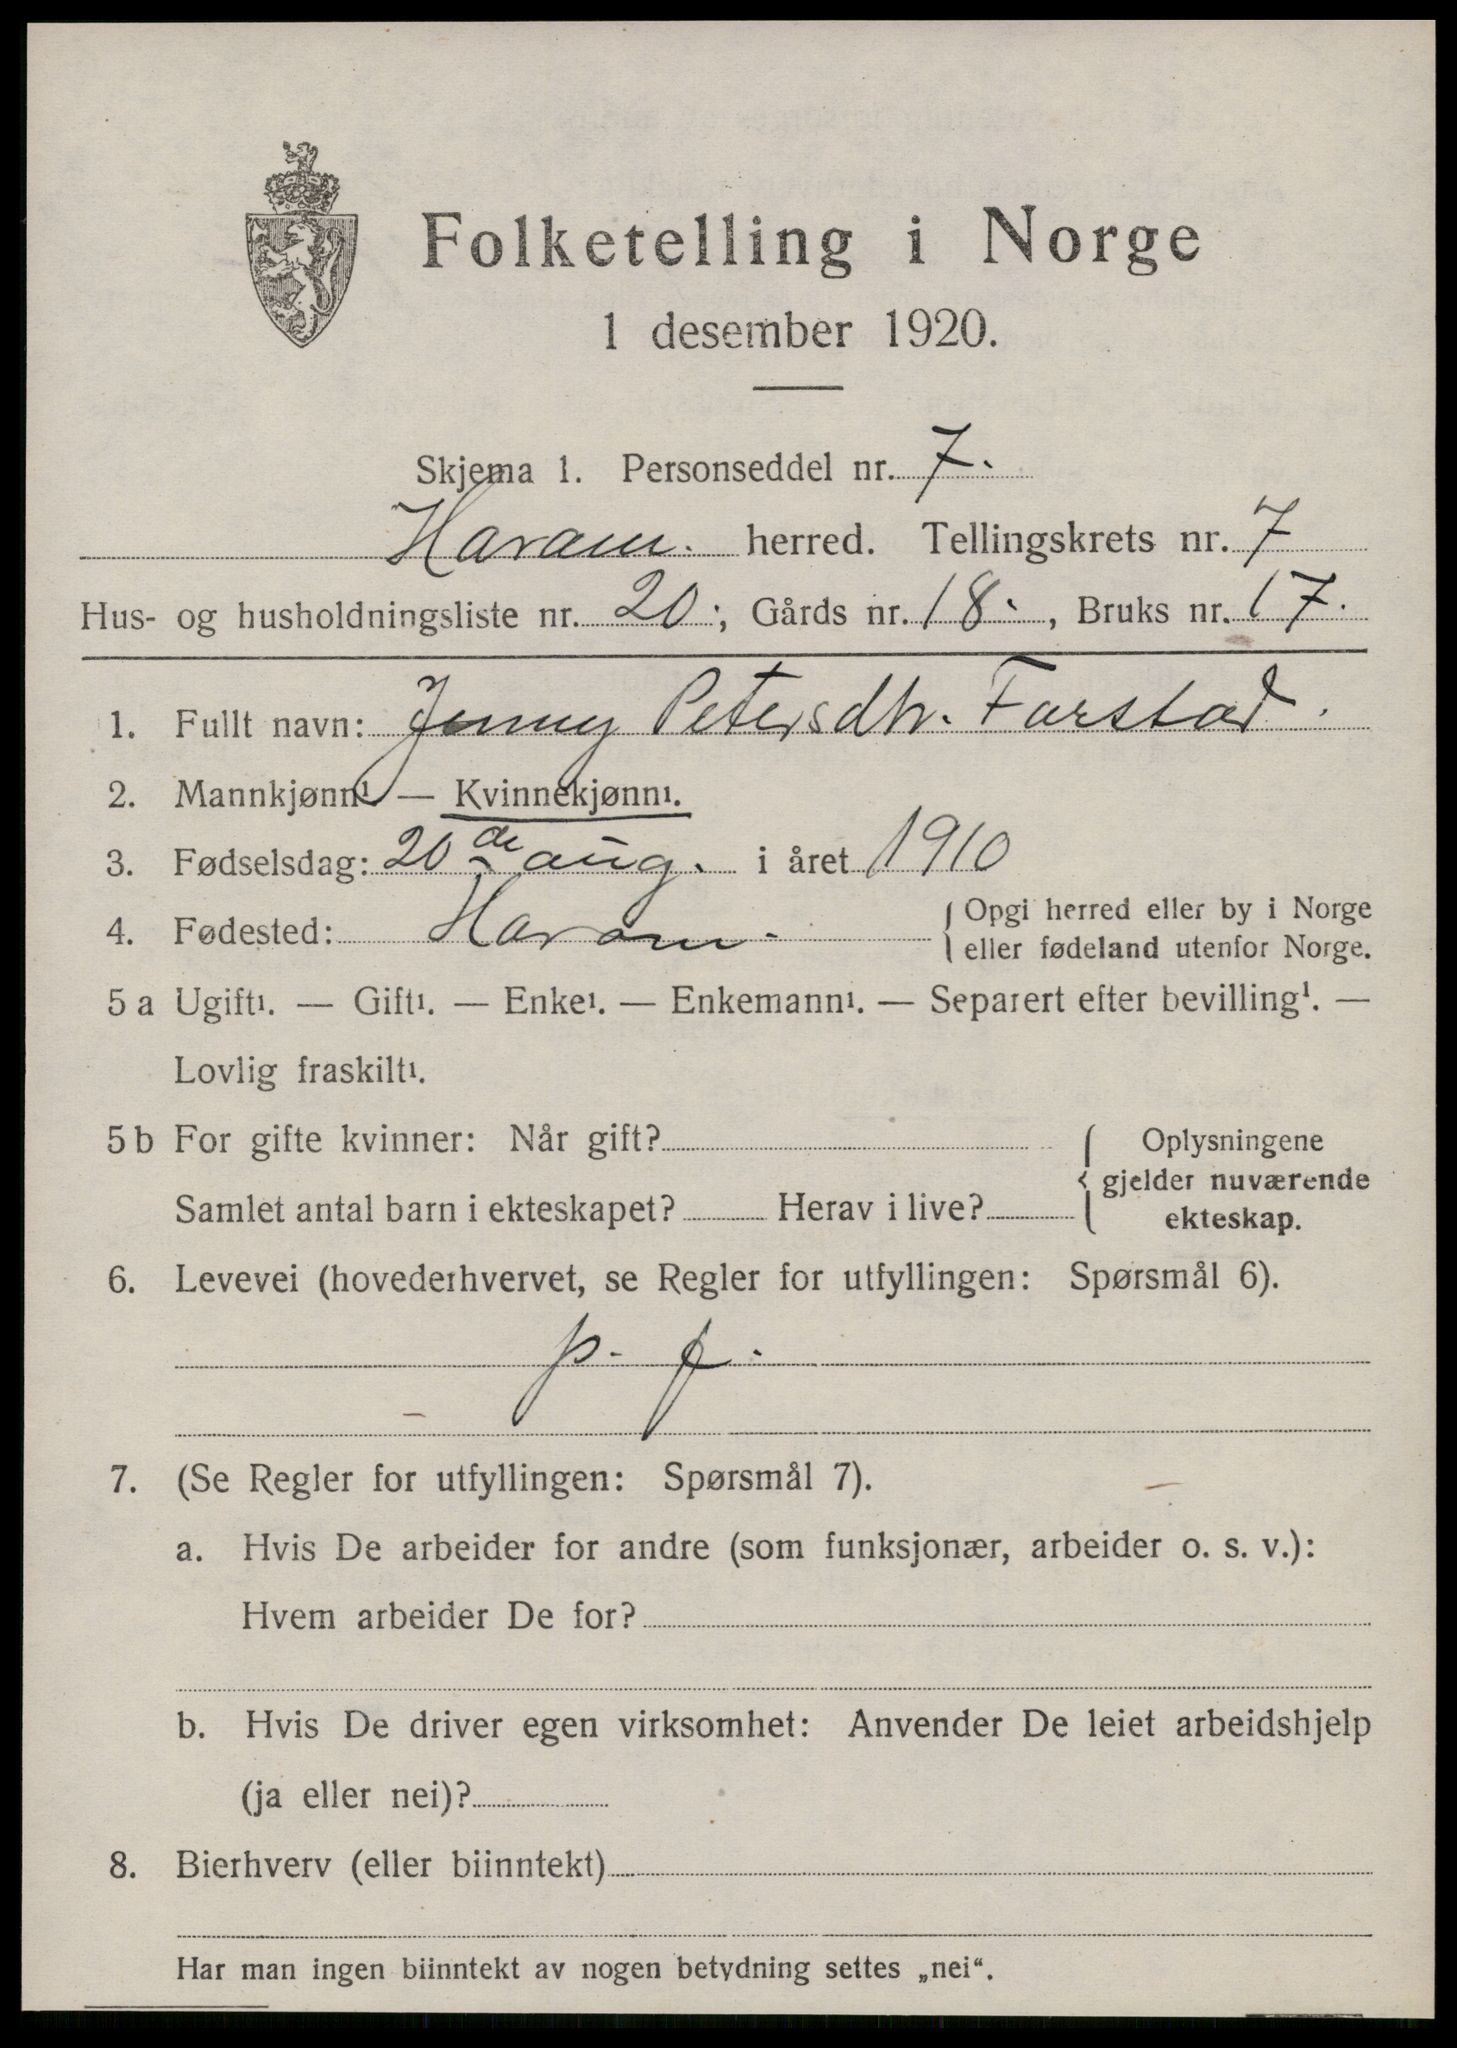 Folketelling i Norge
1 desember 1920.
Skjema 1. Personseddel nr. 7.
Haram. herred. Tellingskrets nr. 7
Hus- og husholdningsliste nr. 20; Gårds nr. 18., Bruks nr. 17.
1. Fullt navn: Jenny Petersdtr. Farstad.
2. Mannkjønn¹. — Kvinnekjønn¹.
3. Fødselsdag: 20de aug. i året 1910
4. Fødested: Haram. {Opgi herred eller by i Norge
eller fødeland utenfor Norge.
5 a Ugift¹. — Gift¹. — Enke¹. — Enkemann¹. — Separert efter bevilling¹. —
Lovlig fraskilt¹.
5 b For gifte kvinner: Når gift? { Oplysningene
gjelder nuværende
Samlet antal barn i ekteskapet? Herav i live? ekteskap.
6. Levevei (hovederhvervet, se Regler for utfyllingen: Spørsmål 6).
p. f.
7. (Se Regler for utfyllingen: Spørsmål 7).
a. Hvis De arbeider for andre (som funksjonær, arbeider o. s. v.):
Hvem arbeider De for?
b. Hvis De driver egen virksomhet: Anvender De leiet arbeidshjelp
(ja eller nei)?
8. Bierhverv (eller biinntekt)
Har man ingen biinntekt av nogen betydning settes „nei“.